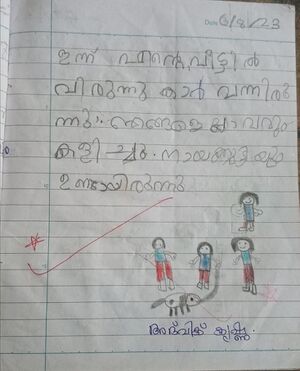 Date 6/8/23
ഇന്ന് എന്റെ വീട്ടിൽ
വിരുന്നുകാർ വന്നിരു
ന്നു. ഞങ്ങളെല്ലാവരും
കളിച്ചു. നായക്കുട്ടിയും
ഉണ്ടായിരുന്നു
അദ്വിക് കൃഷ്ണ.